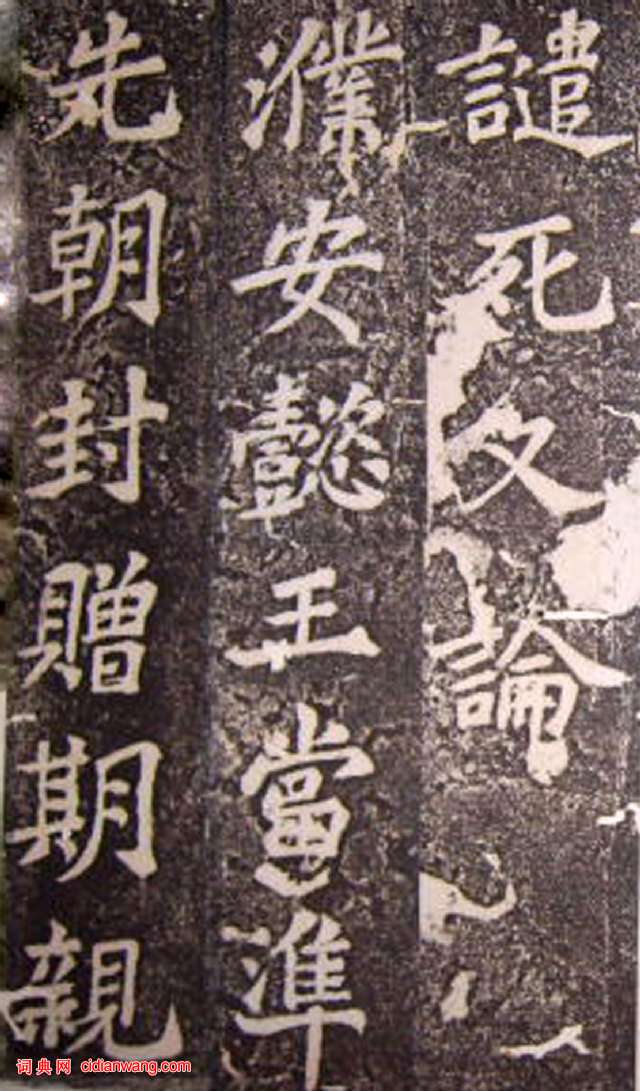 譴死又論
濮安懿王當準
先朝封贈期親
词典网 cidianwang.com